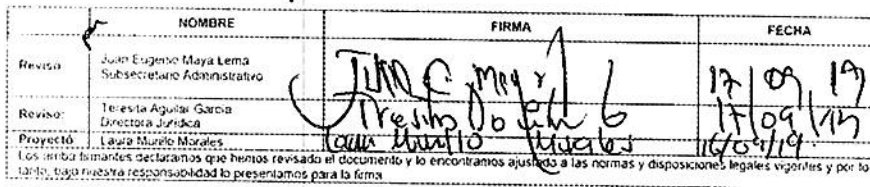 NOMBRE FIRMA FECHA
Revisó Juan Eugenio Maya Lema Juan E Maya 17/09/19
Subsecretario Administrativo
Revisó: Teresita Aguilar García 17/09/19
Directora Jurídica
Proyectó Laura Murillo Morales Laura Murillo Morales 16/09/19
Los arriba firmantes declaramos que hemos revisado el documento y lo encontramos ajustado a las normas y disposiciones legales vigentes y por lo
tanto, bajo nuestra responsabilidad lo presentamos para la firma